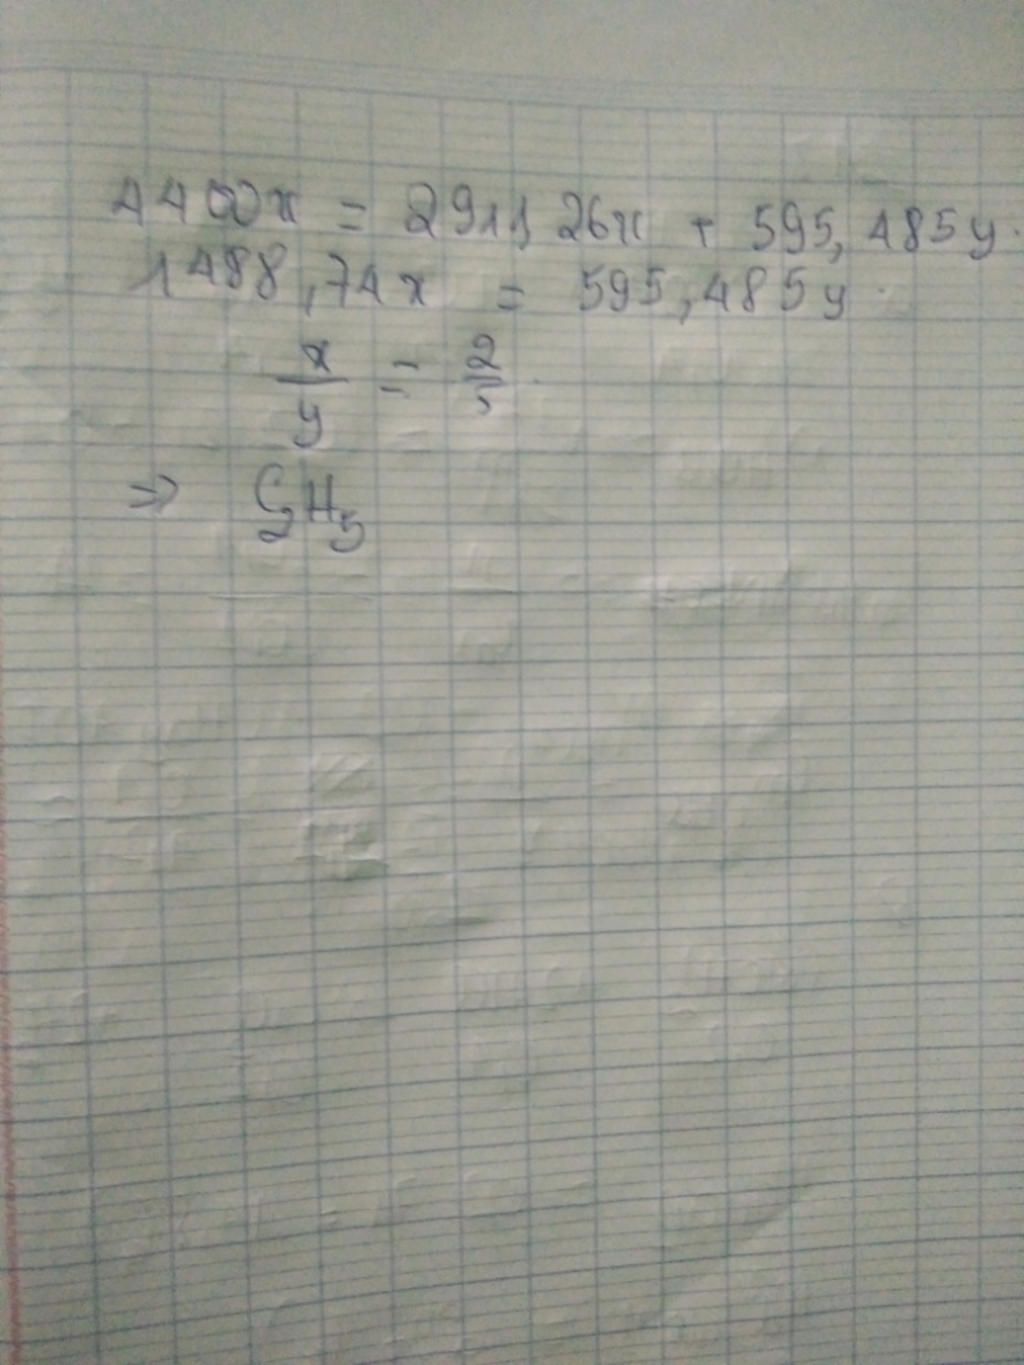 4400x = 2911,26x + 595,485y.
1488,74x = 595,485y.
x/y = 2/5.
=> C₂H₅